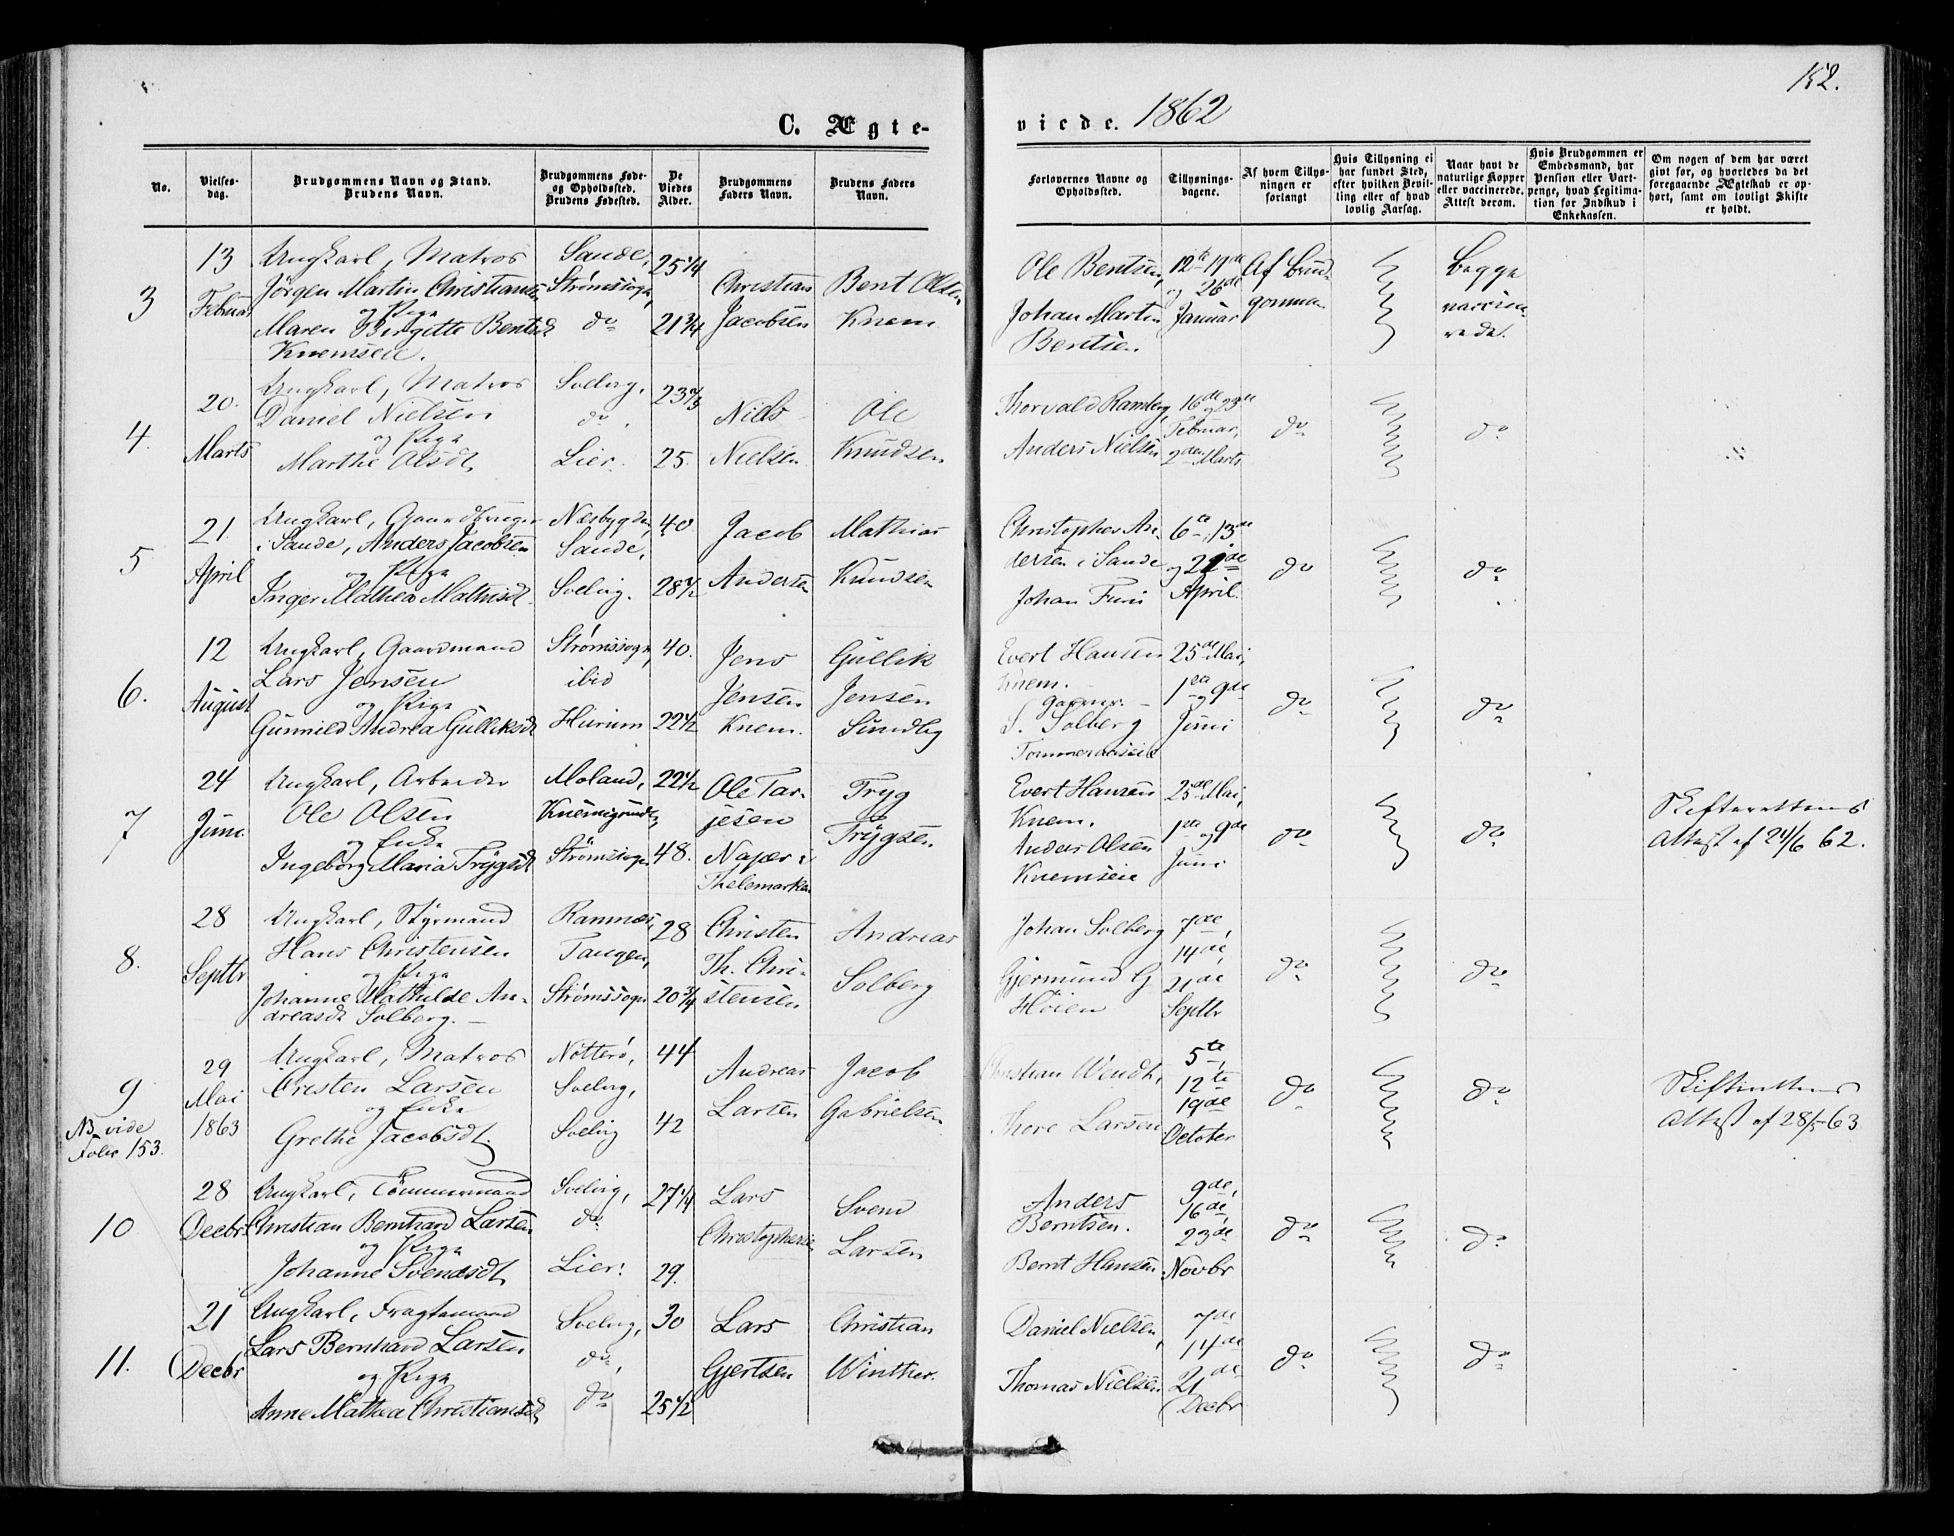 152.
C. Ægte-
viede. 1862
No.
Vielses-
dag.
Brudgommens Navn og Stand.
Brudens Navn.
Brudgommens Føde-
og Opholdssted.
Brudens Fødested.
De
Viedes
Alder.
Brudgommens
Faders Navn.
Brudens Faders
Navn.
Forlovernes Navne og
Opholdssted.
Tillysnings-
dagene.
Af hvem Tillys-
ningen er
forlangt
Hvis Tillysning ei
har fundet Sted,
efter hvilken Bevil-
ling eller af hvad
lovlig Aarsag.
Naar havt de
naturlige Kopper
eller vaccinerede.
Attest derom.
Hvis Brudgommen er
Embedsmand, har
Pension eller Vart-
penge, hvad Legitima-
tion for Indskud i
Enkekassen.
Om nogen af dem har været
gift før, og hvorledes da det
foregaaende Ægteskab er op-
hørt, samt om lovligt Skifte
er holdt.
3
13
Februar
Ungkarl, Matros
Jörgen Martin Christians
og Pige
Maren Birgitte Bentsd
Knemseie.
Sande,
Strømssogn,
do
25 1/4
21 3/4
Christian
Jacobsen
Bent Olsen
Knem
Ole Bentsen,
Johan Martin
Bentsen.
12te 19de
og 26de
Januar
Af Brud-
gommen
begge
vaccine-
rede.
4.
20.
Marts
Ungkarl, Matros
Daniel Nielsen
og Pige
Marthe Olsdt
Svelvig,
do.
Lier.
25.
Niels
Nielsen
Ole
Knudsen
Thorvald Ramberg,
Anders Nielsen
16de og 23de
Februar,
2den Marts
do
do
5
21
April
Ungkarl, Gaardbruger
i Sande, Anders Jacobsen
og Pige
Inger Mathea Mathisdt.
Næsbygden,
Sande,
Svelvig.
40
28 1/2
Jacob
Andersen
Mathias
Knudsen
Christopher An-
dersen i Sande
Johan Furu
6te, 13de
og 21de
April.
do
do
6.
12
August
Ungkarl, Gaardmand
Lars Jensen
og Pige
Gunnild Andrea Gulliksdt
Strømssogn,
ibid
Hurum
40.
22 1/2
Jens
Jensen
Knem.
Gullik
Jensen
Sundby
Evert Hansen
Knem.
S. Solberg
Tømmeraaseie
25de Mai,
1ste og 9de
Juni
do
do
7
24
Juni
Ungkarl, Arbeider
Ole Olsen
og Enke
Ingeborg Maria Trygsdt
Moland,
Knemsgrunden,
Strømssogn
22 1/2
48.
Ole Tar-
jesen
Napær i
Thelemarken
Tryg
Trygsen
Evert Hansen
Knem.
Anders Olsen
Knemseie
25de Mai,
1ste og 9de
Juni
do
do
Skifterettens
Attest af 24/6 62.
8.
28
Septbr
Ungkarl, Styrmand
Hans Christensen
og Pige
Johanne Mathilde An-
dreasdt Solberg.
Ramnæs,
Tangen,
Strømssogn
28
20 3/4
Christen
Th. Chri-
stensen
Andreas
Solberg
Johan Solberg
Gjermund G
Høien
7de,
14de,
21de
Septbr
do
do
9
NB vide
Folio 153.
29
Mai
1863
Ungkarl, Matros
Cresten Larsen
og Enke
Grethe Jacobsdt.
Nøtterø,
Svelvig,
Svelvig
44
42
Andreas
Larsen
Jacob
Gabrielsen
Christian Windt,
Thore Larsen
5te,
12te
19de
October
do
do
Skifterettens
Attest af 28/5 63
10
28
Decbr
Ungkarl, Tømmermand
Christian Bernhard Larsen
og Pige
Johanne Svendsdt
Svelvig,
do
Lier.
27 1/4
29.
Lars
Christophersen
Svend
Larsen
Anders
Berntsen.
Bernt Hansen
9de,
16de,
23de
Novbr
do
do
11.
21
Decbr
Ungkarl, Fragtemand
Lars Bernhard Larsen
og Pige
Anne Mathea Christiansdt
Svelvig,
do,
do
30
25 1/2
Lars
Gjertsen
Christian
Winther.
Daniel Nielsen,
Thomas Nielsen
7de
14de
21de
Decbr
do
do